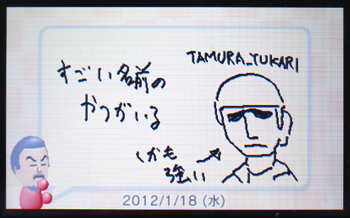 すごい名前の
やつがいる
TAMURA_YUKARI
しかも
強い
2012/1/18(水)